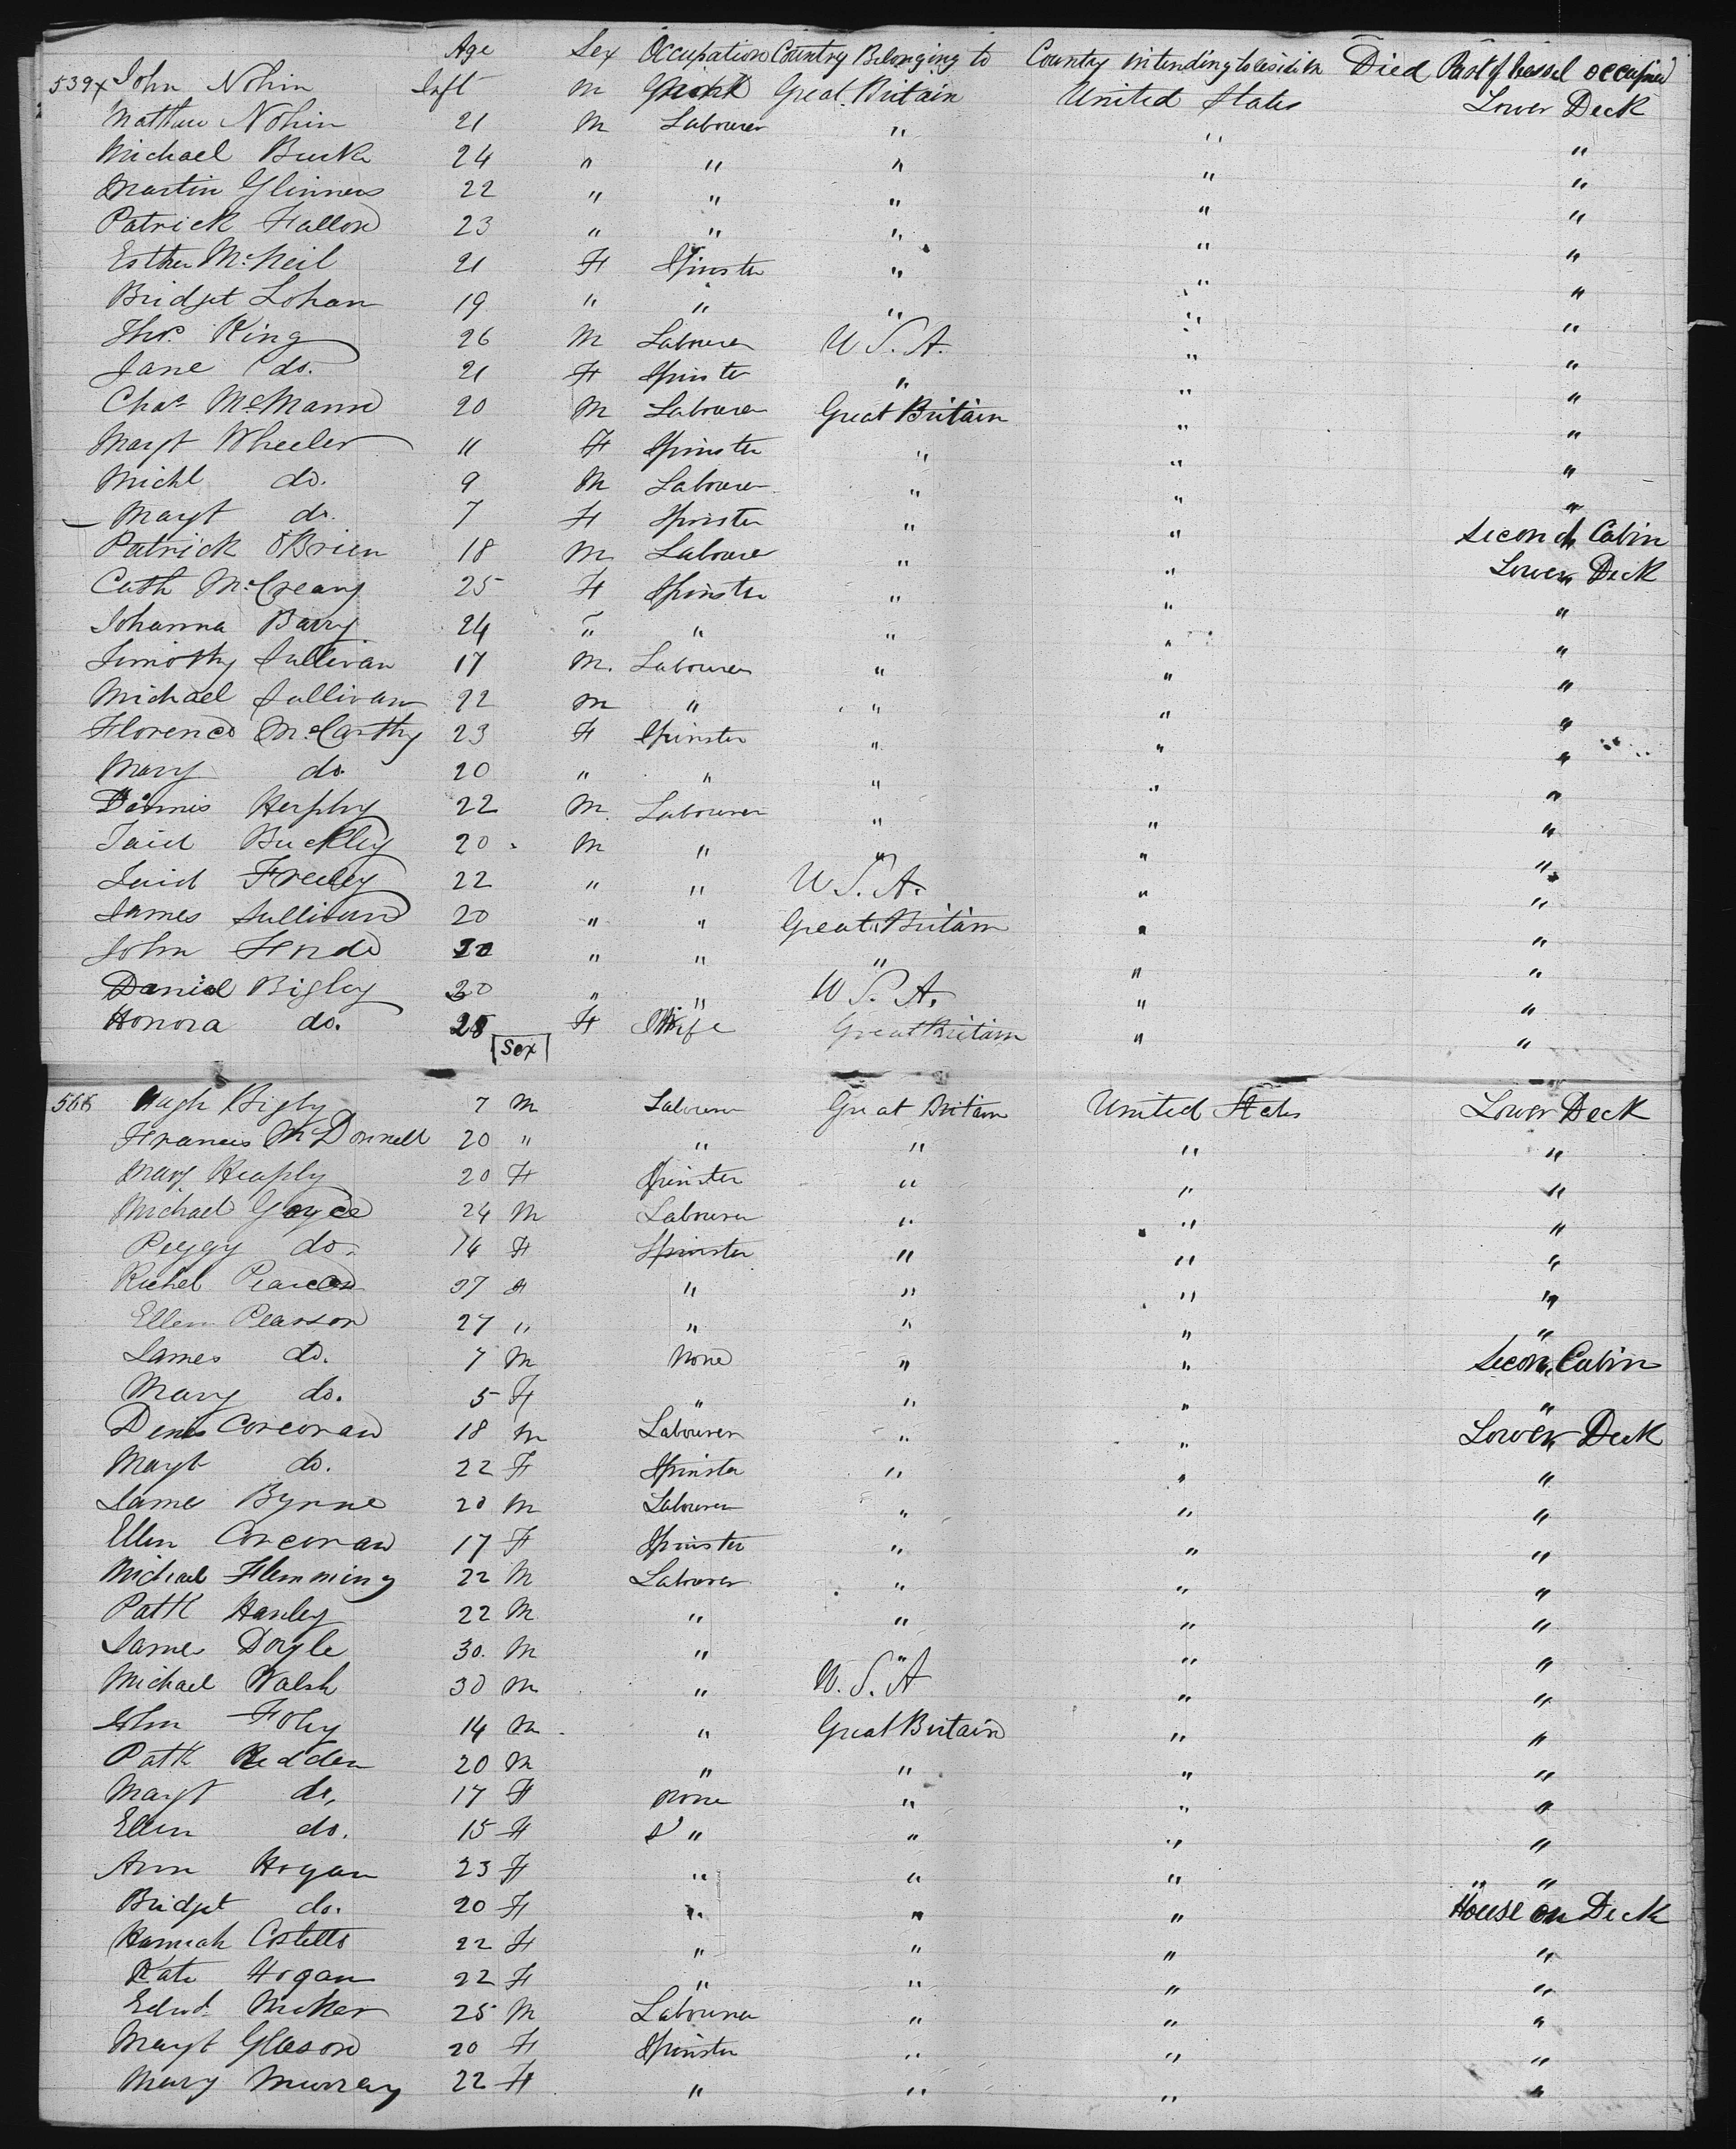 Age Sex Occupation Country Belonging to Country intending to reside in Died Part of vessel occupied
539x John Nohin Inft M Great Britain United States Lower Deck
Matthew Nohin 21 M Labourer " " "
Michael Burke 24 " " " " "
Martin Glinnens 22 " " " " "
Patrick Fallon 23 " " " " "
Esther McNeil 21 F Spinster " " "
Bridget Lohan 19 " " " " "
Thos. King 26 M Labourer U.S.A. " "
Jane do. 21 F Spinster " " "
Chas McMann 20 M Labourer Great Britain " "
Margt Wheeler 11 F Spinster " " "
Michl do. 9 M Labourer " " "
Margt do. 7 F Spinster " " Second Cabin
Patrick O'Brien 18 M Labourer " " Lower Deck
Cath McCreary 25 F Spinster " " "
Johanna Barry 24 " " " " "
Timothy Sullivan 17 M. Labourer " " "
Michael Sullivan 22 M " " " "
Florence McCarthy 23 F Spinster " " "
Mary do. 20 " " " " "
Dennis Herphy 22 M. Labourer " " "
Taid Buckley 20 M " " " "
Taid Freeley 22 " " U.S.A. " "
James Sullivan 20 " " Great Britain " "
John Forde 20 " " " " "
Daniel Bigley 30 " " U.S.A. " "
Honora do. 28 F Wife Great Britain " "
Sex
566 Hugh Bigley 7 M Labourer Great Britain United States Lower Deck
Francis McDonnell 20 " " " " "
Mary Heaply 20 F Spinster " " "
Michael Goyce 24 M Labourer " " "
Peggy do. 14 F Spinster " " "
Richel 27 F " " " "
Ellen Pearson 27 " " " " "
James do. 7 M None " " Secon Cabin
Mary do. 5 F " " " "
Denis Corcoran 18 M Labourer " " Lower Deck
Margt do. 22 F Spinster " " "
James Byrne 20 M Labourer " " "
Ellen Corcoran 17 F Spinster " " "
Michael Flemming 22 M Labourer " " "
Patk Hanley 22 M " " " "
James Doyle 30. M " " " "
Michael Walsh 30 M " U.S.A " "
John Foley 14 M " Great Britain " "
Patk Redden 20 M " " " "
Margt do. 17 F None " " "
Ellen do. 15 F " " " "
Ann Hogan 23 F " " " " "
Bridget do. 20 F " " " House on Deck
Hannah Costello 22 F " " " "
Kate Hogan 22 F " " " "
Edwd. Meker 25 M Labourer " " "
Margt Gleeson 20 F Spinster " " "
Mary Murray 22 F " " " "